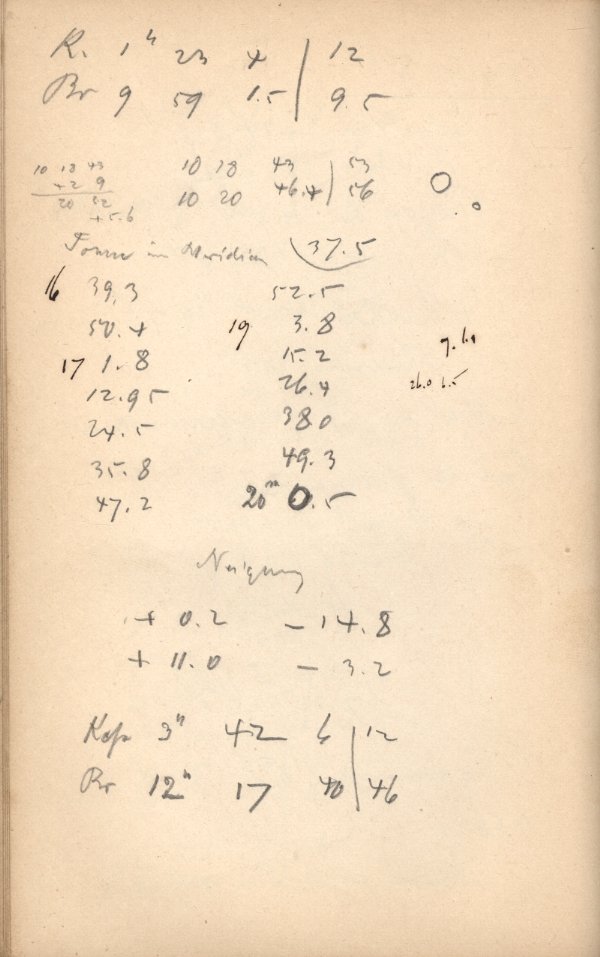 K. 1ʰ 23 4 | 12
Br 9 59 1.5 | 9.5
10 18 43
+2 9
20 52
+5.6
10 18 43 | 53
10 20 46.4 | 56
Sonne im Meridian 37.5
16 39.3 52.5
50.4 19 3.8
17 1.8 15.2
12.95 26.4
24.5 38.0
35.8 49.3
47.2 20ᵐ 0.5
26.0 6.5
Neigung
+ 0.2 – 14.8
+ 11.0 – 3.2
3ʰ 42 6 | 12
Br 12ʰ 17 40 | 46